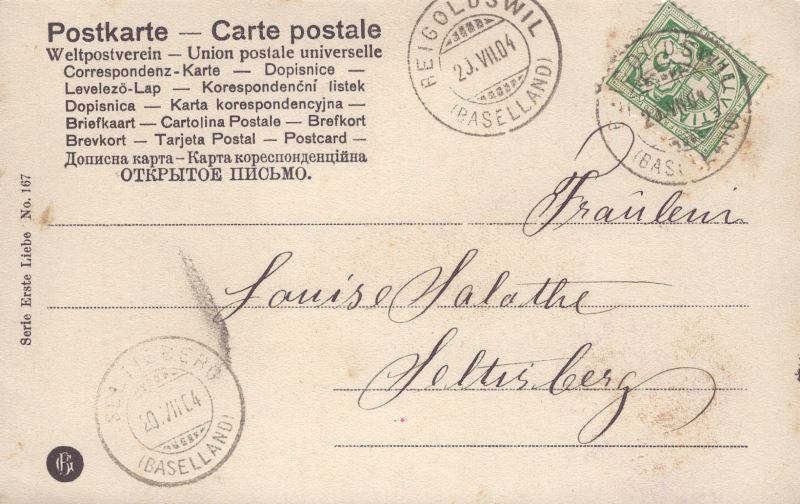 Postkarte — Carte postale
Weltpostverein — Union postale universelle
Correspondenz-Karte — Dopisnice —
Levelezö-Lap — Korespondenční listek
Dopisnica — Karta korespondencyjna —
Briefkaart — Cartolina Postale — Brefkort
Brevkort — Tarjeta Postal — Postcard —
Дописна карта — Карта кореспонденційна
ОТКРЫТОЕ ПИСЬМО.
REIGOLDSWIL
20.VII.04
(BASELLAND)
HELVETIA
(BAS
Fräulein
Louise Salathe
Seltisberg
Serie Erste Liebe No. 167
SELTISBERG
20.VII.04
(BASELLAND)